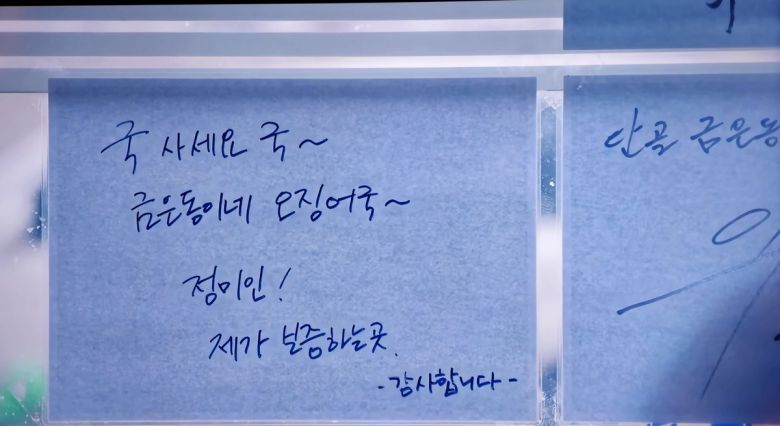 국 사세요 국~
금은동이네 오징어국~
정미인!
제가 보증하는곳.
-감사합니다-
단골 금은동